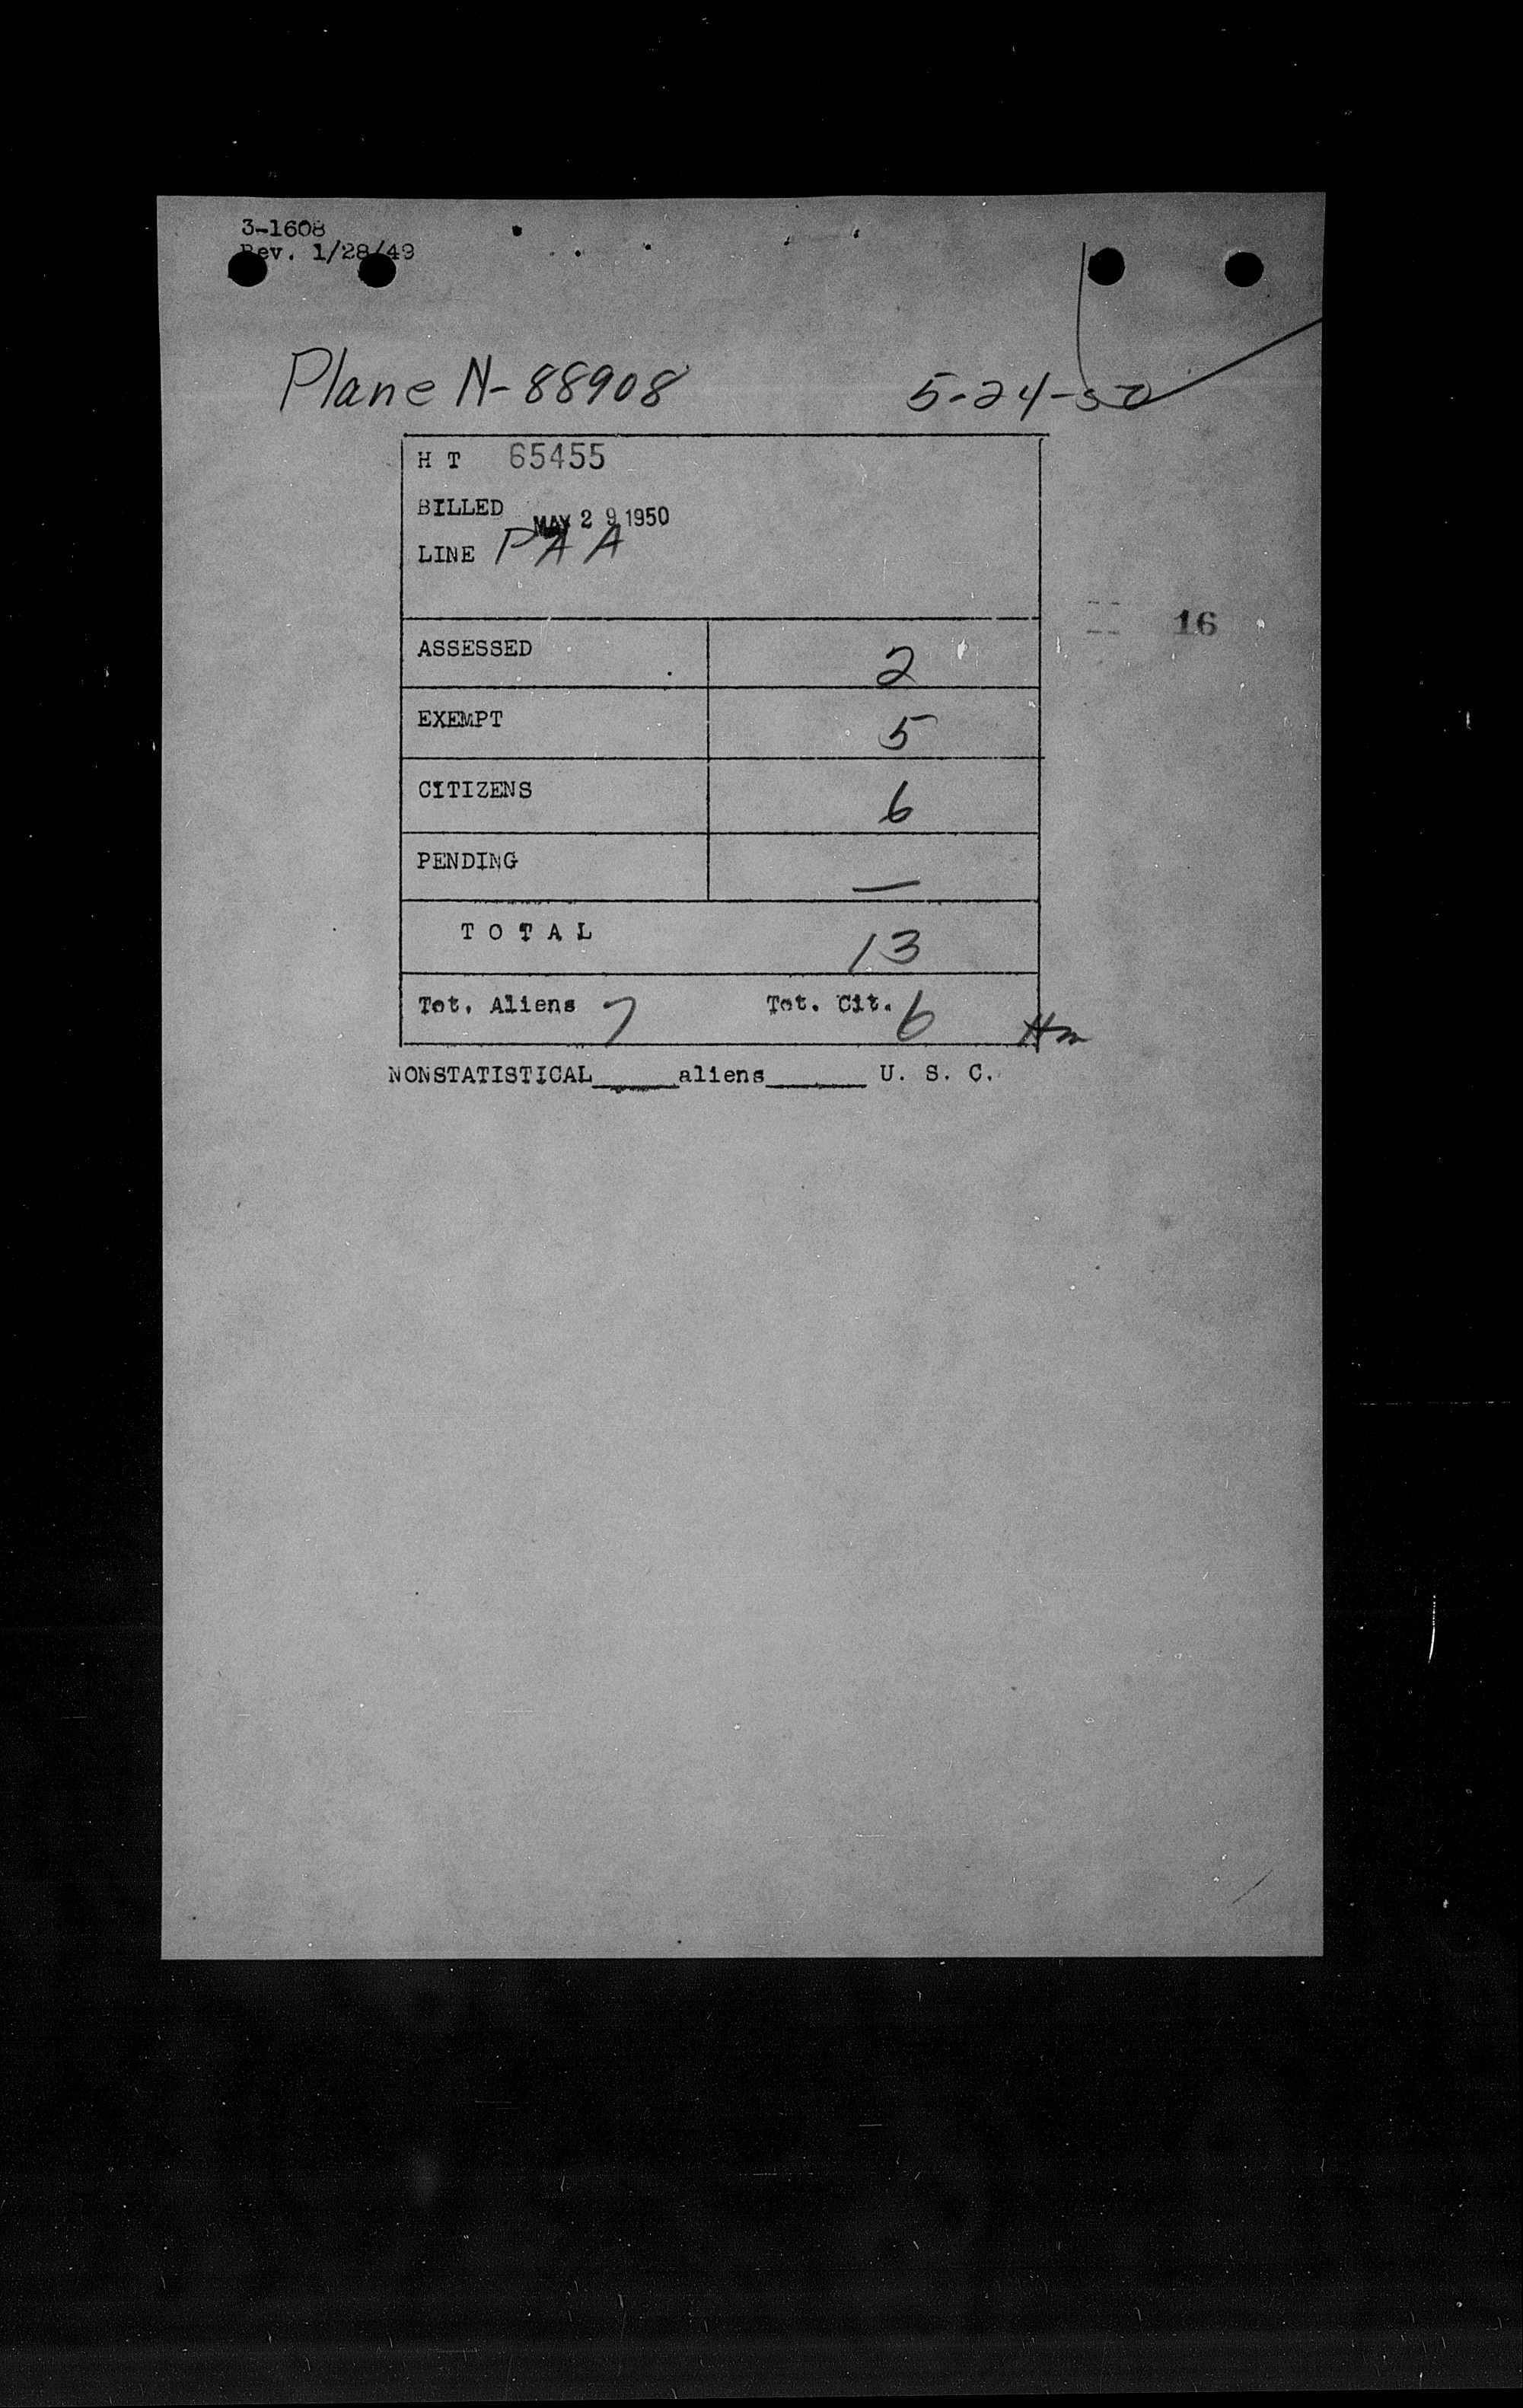 3-1608
Rev. 1/28/49
Plane N-88908 5-24-50
H T 65455
BILLED MAY 29 1950
LINE PAA
16
ASSESSED 2
EXEMPT 5
CITIZENS 6
PENDING —
T O T A L 13
Tot. Aliens 7 Tot. Cit. 6
NONSTATISTICAL_____aliens______ U. S. C.